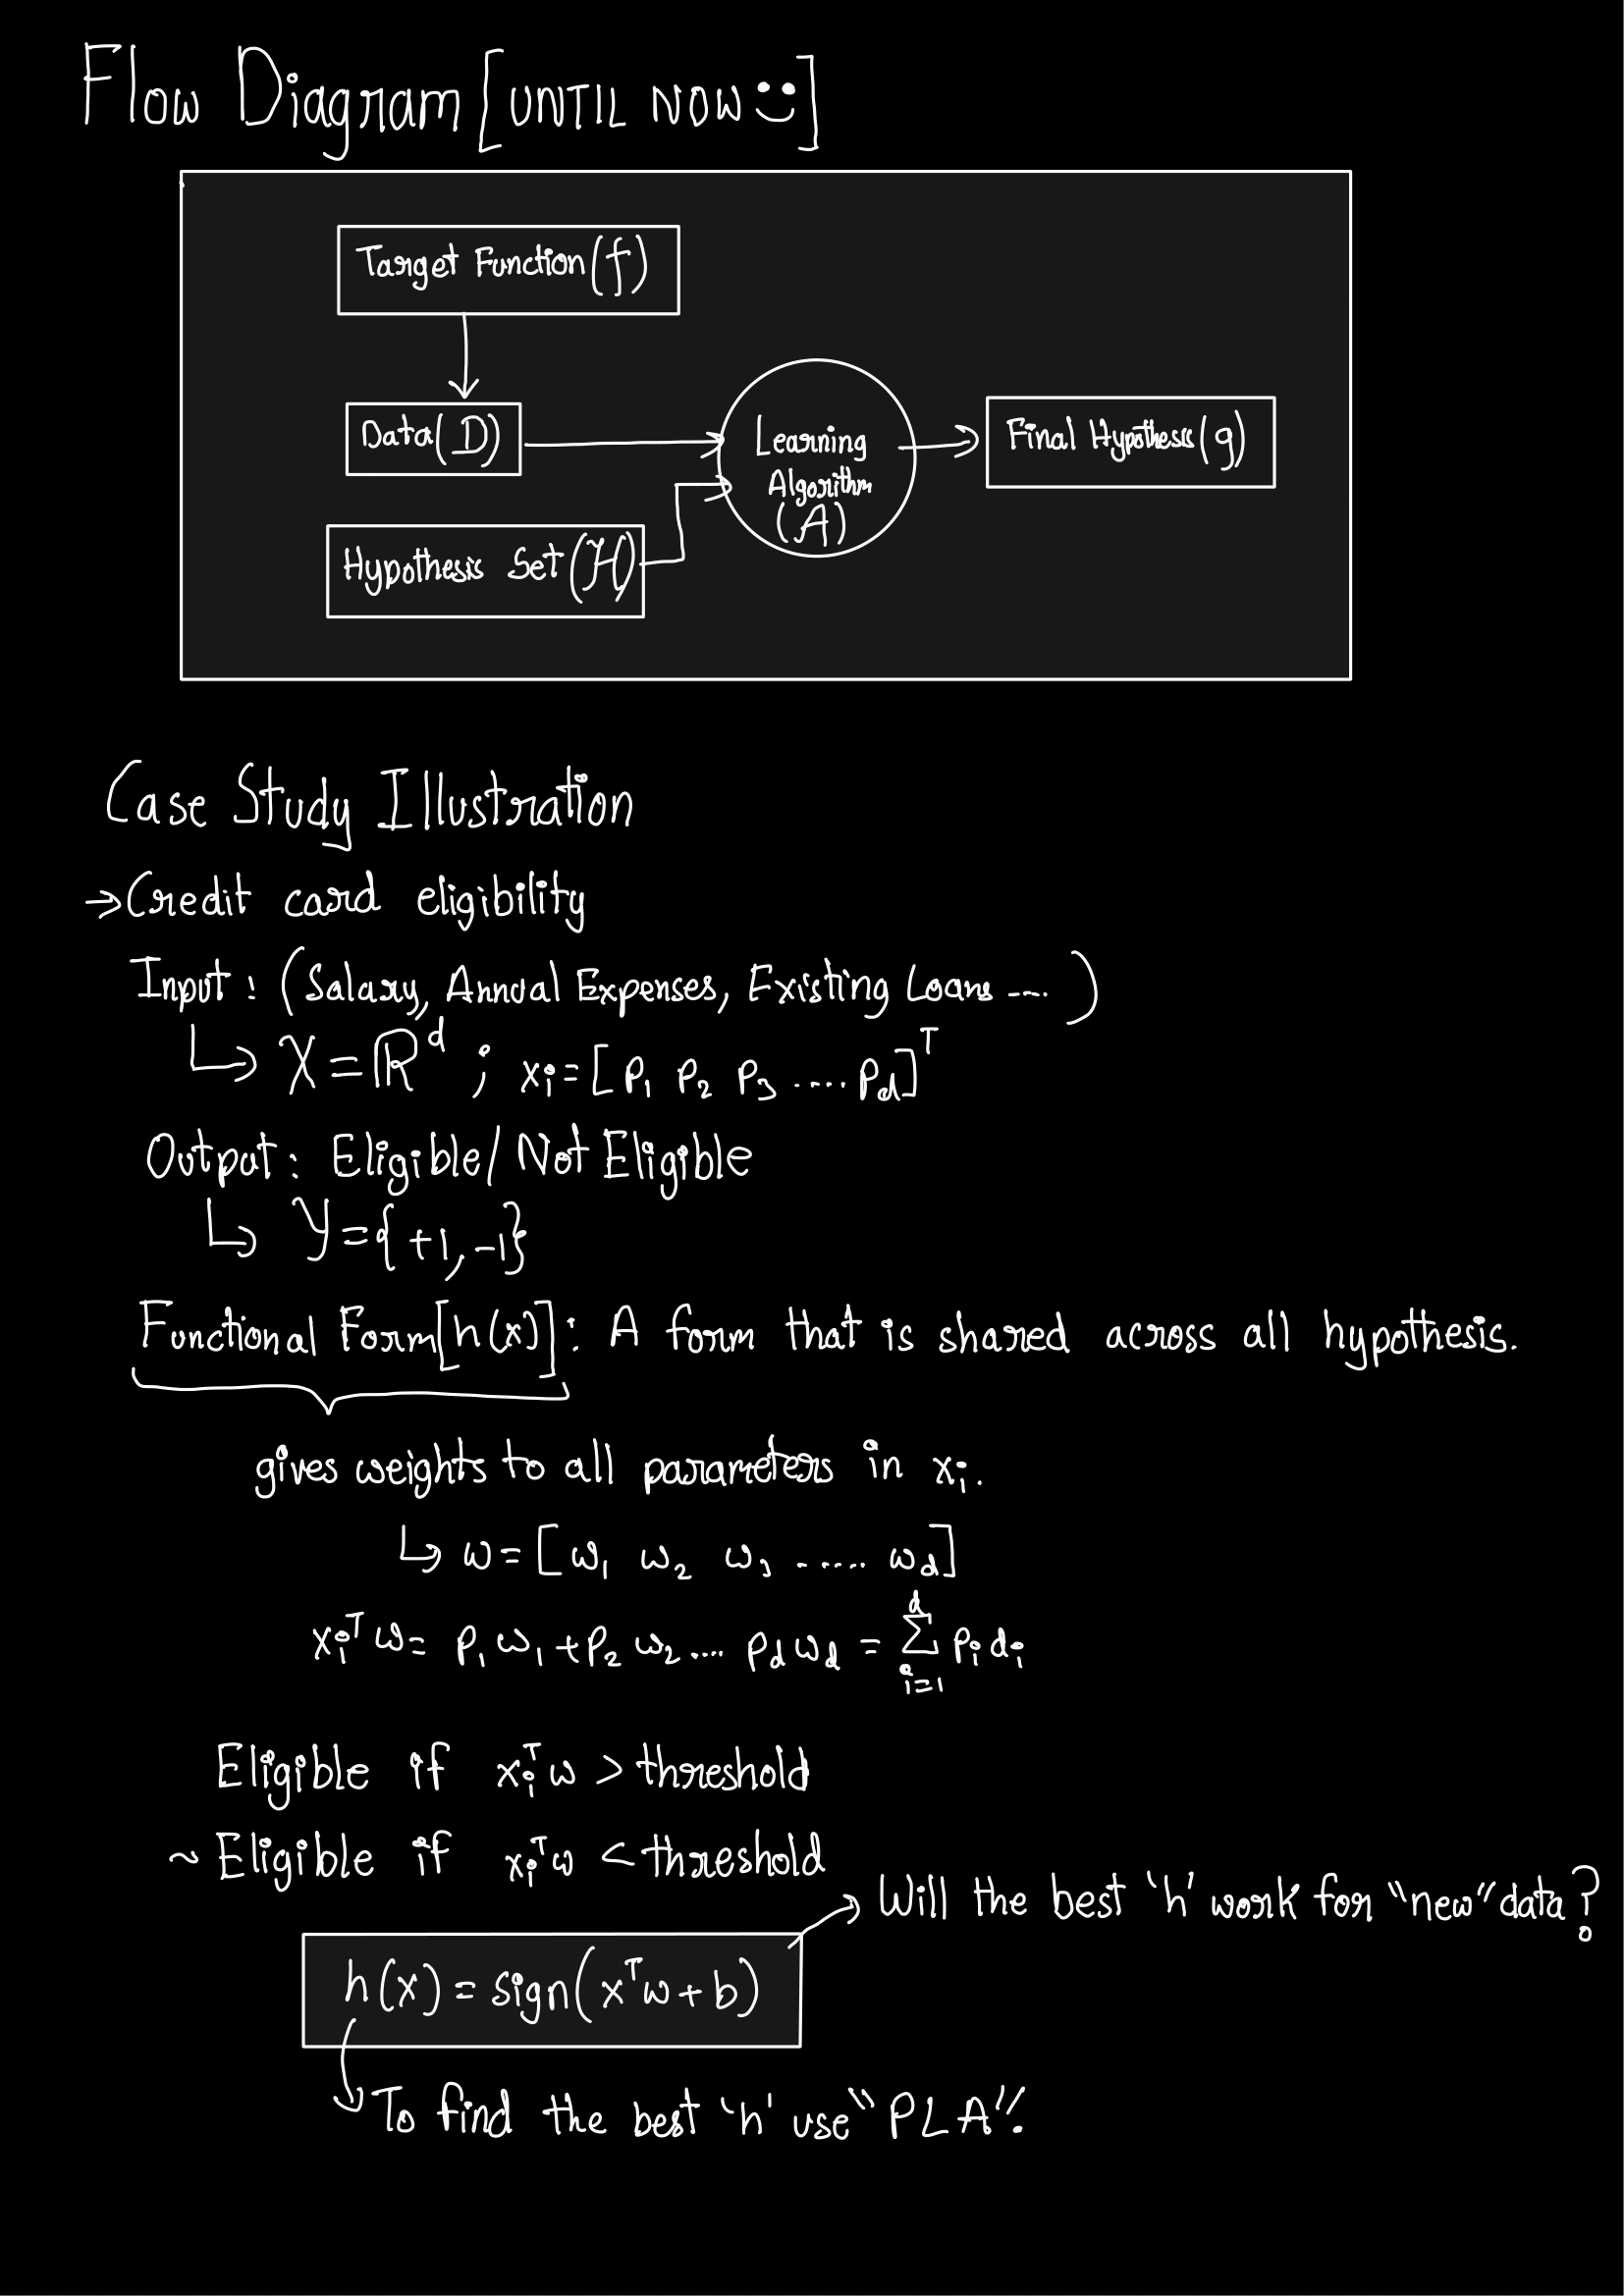 Flow Diagram [UNTIL NOW :)]
Target Function (f)
Data (D)
Learning
Algorithm
(A)
Final Hypothesis (g)
Hypothesis Set (H)
Case Study Illustration
→ Credit card eligibility
Input : (Salary, Annual Expenses, Existing Loans ---- )
↳ X = ℝ^d ; xᵢ = [p₁ p₂ p₃ ..... p_d]^T
Output : Eligible / Not Eligible
↳ Y = {+1, -1}
Functional Form [h(x)] : A form that is shared across all hypothesis.
gives weights to all parameters in xᵢ.
↳ ω = [ω₁ ω₂ ω₃ ...... ω_d]
xᵢ^T ω = p₁ω₁ + p₂ω₂ .... p_dω_d = Σ_{i=1}^{d} pᵢdᵢ
Eligible if xᵢ^T ω > threshold
~ Eligible if xᵢ^T ω < threshold
→ Will the best 'h' work for "new" data?
h(x) = sign(x^T ω + b)
To find the best 'h' use "PLA".